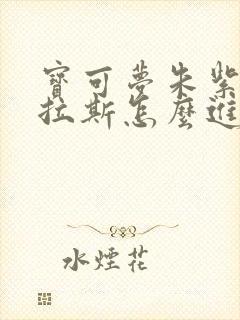 寶可夢朱紫
拉斯怎麼進
水煙花